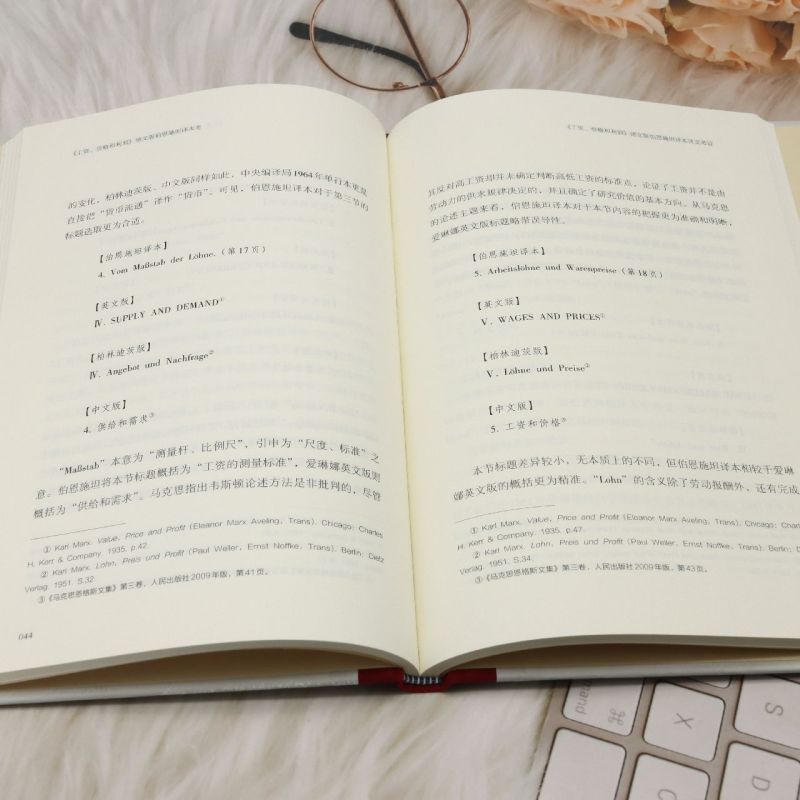 《工资、价格和利润》德文版伯恩施坦译本考
的变化，柏林迪茨版、中文版同样如此，中央编译局1964年单行本更是
直接把“货币流通”译作“货币”。可见，伯恩施坦译本对于第三节的
标题选取更为合适。
【伯恩施坦译本】
4. Vom Maßstab der Löhne.（第17页）
【英文版】
Ⅳ. SUPPLY AND DEMAND①
【柏林迪茨版】
Ⅳ. Angebot und Nachfrage②
【中文版】
4. 供给和需求③
“Maßstab”本意为“测量杆、比例尺”，引申为“尺度、标准”之
意。伯恩施坦将本节标题概括为“工资的测量标准”，爱琳娜英文版则
概括为“供给和需求”。马克思指出韦斯顿论述方法是非批判的，尽管
① Karl Marx. Value, Price and Profit (Eleanor Marx Aveling, Trans). Chicago: Charles
H. Kerr & Company. 1935. p.42.
② Karl Marx. Lohn, Preis und Profit (Paul Weller, Ernst Noffke, Trans). Berlin: Dietz
Verlag. 1951. S.32
③《马克思恩格斯文集》第三卷，人民出版社2009年版，第41页。
044
《工资、价格和利润》德文版伯恩施坦译本译文考证
其反对高工资却并未确定判断高低工资的标准点，论证了工资并不是由
劳动力的供求规律决定的，并且确定了研究价值的基本方向。从马克思
的论述主题来看，伯恩施坦译本对于本节内容的把握更为准确和明晰，
爱琳娜英文版标题略带误导性。
【伯恩施坦译本】
5. Arbeitslöhne und Warenpreise（第18页）
【英文版】
Ⅴ. WAGES AND PRICES①
【柏林迪茨版】
Ⅴ. Löhne und Preise②
【中文版】
5. 工资和价格③
本节标题差异较小，无本质上的不同，但伯恩施坦译本相较于爱琳
娜英文版的概括更为精准。“Lohn”的含义除了劳动报酬外，还有完成
① Karl Marx. Value, Price and Profit (Eleanor Marx Aveling, Trans). Chicago: Charles
H. Kerr & Company. 1935. p.47.
② Karl Marx. Lohn, Preis und Profit (Paul Weller, Ernst Noffke, Trans). Berlin: Dietz
Verlag. 1951. S.34.
③《马克思恩格斯文集》第三卷，人民出版社2009年版，第43页。
⌘
X
S